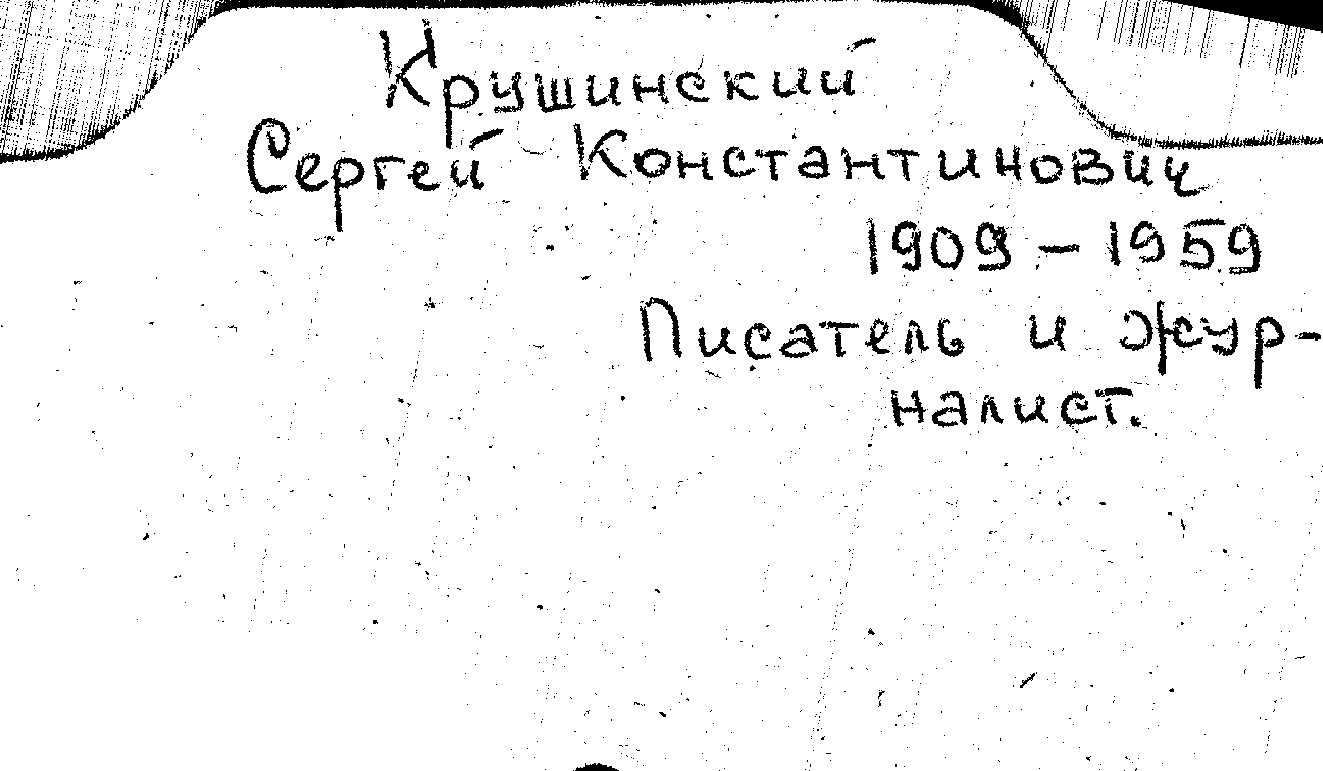 Крушинский
Сергей Константинович
1909 – 1959
Писатель и жур-
налист.